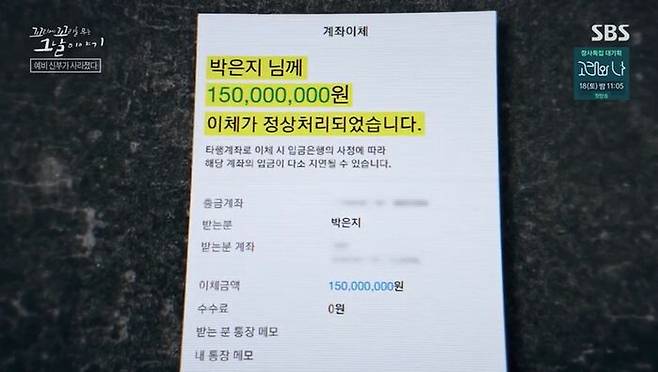 꼬리에 꼬리를 무는
그날 이야기
예비 신부가 사라졌다
SBS
창사특집 대기획
고래와 나
18(토) 밤 11:05
첫방송
계좌이체
박은지 님께
150,000,000원
이체가 정상처리되었습니다.
타행계좌로 이체 시 입금은행의 사정에 따라
해당 계좌의 입금이 다소 지연될 수 있습니다.
출금계좌
받는분 박은지
받는분 계좌
이체금액 150,000,000원
수수료 0원
받는 분 통장 메모
내 통장 메모